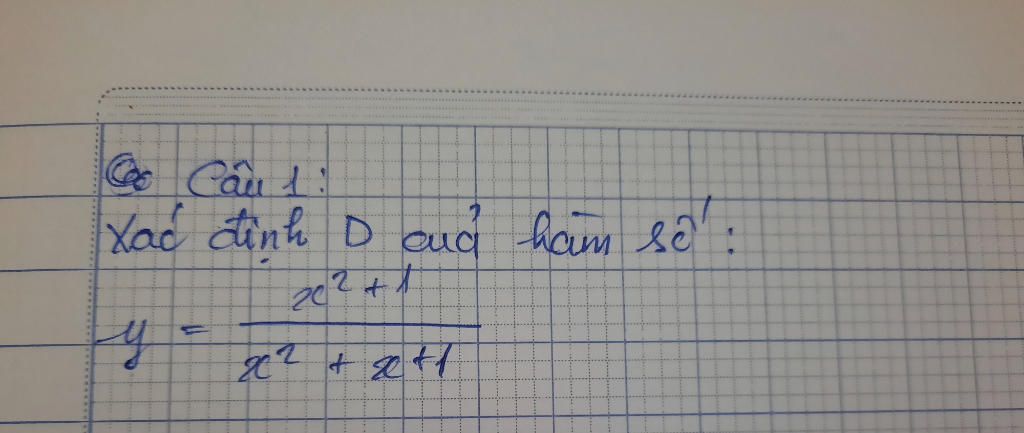 Câu 1:
Xác định D của hàm số:
y = \frac{x^2 + 1}{x^2 + x + 1}